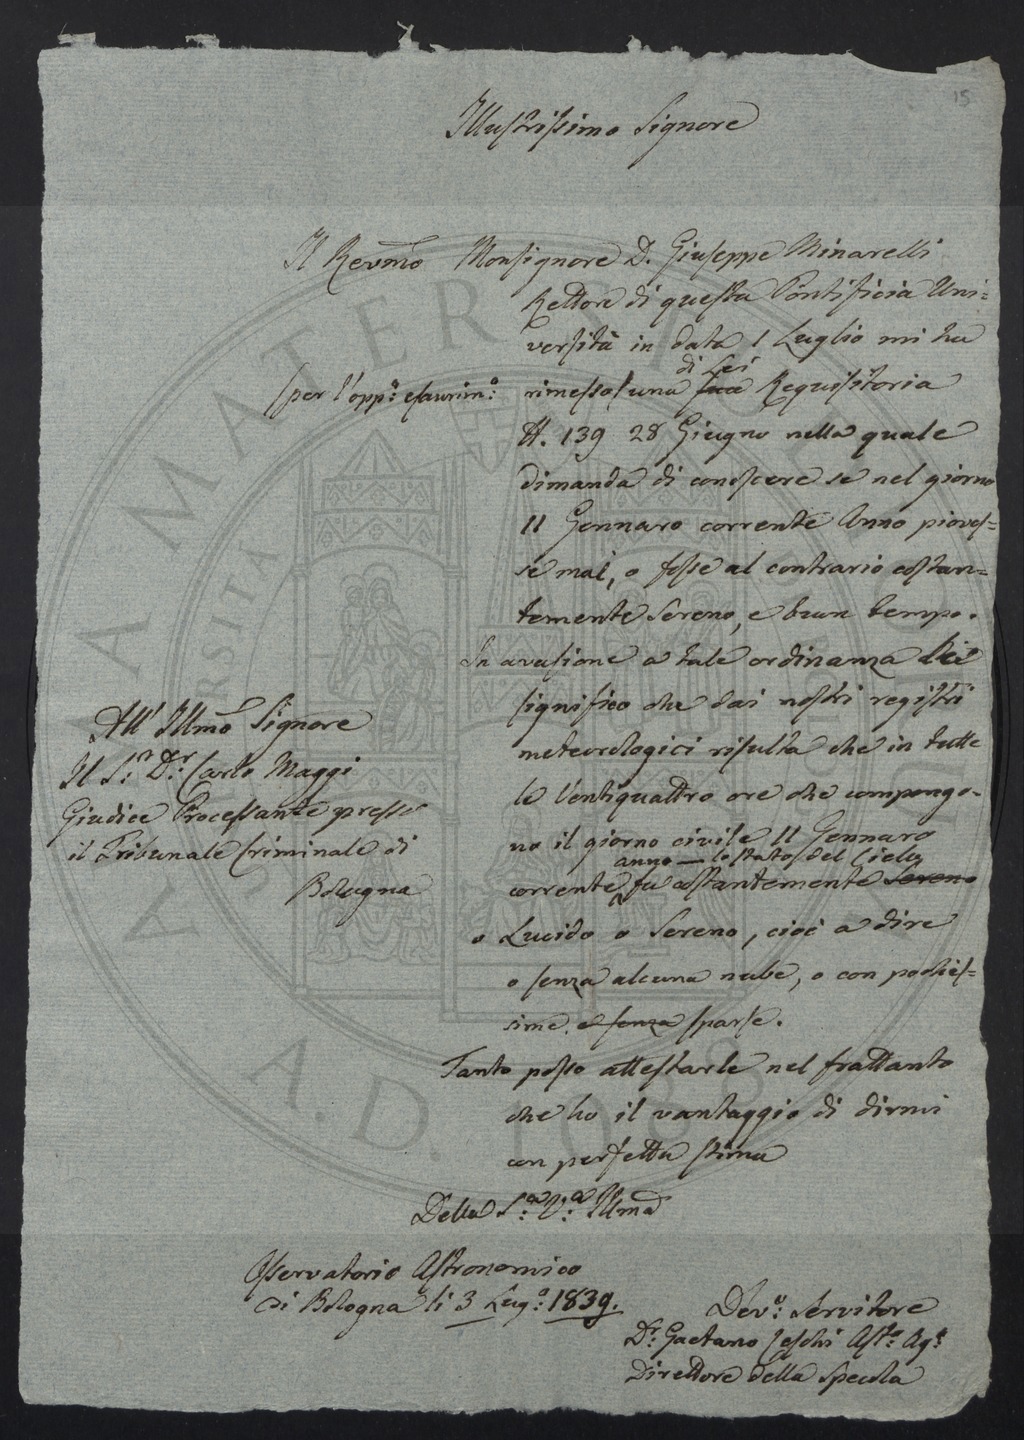 15
Illustrissimo Signore
Il Revmo Monsignore D. Giuseppe Minarelli
Rettore di questa Pontificia Uni=
versità in data 1 Luglio mi ha
(per l'opp.o esaurim.o rimesso) una sua di Lei Requisitoria
N. 139 28 Giugno nella quale
dimanda di conoscere se nel giorno
11 Gennaro corrente Anno pioves=
se mai, o fosse al contrario costan=
temente Sereno, e buon tempo.
In evasione a tale ordinanza Le
significo che dai nostri registri
meteorologici risulta che in tutte
le ventiquattro ore che compongo-
no il giorno civile 11 Gennaro
corrente anno - lo stato del Cielo fu costantemente Sereno
o Lucido o Sereno, cioè a dire
o senza alcuna nube, o con pochis=
sime, e senza sparse.
Tanto posso attestarle nel frattanto
che ho il vantaggio di dirmi
con perfetta stima
Della S.a V.a Illma
All' Illmo Signore
Il S.r D.r Carlo Maggi
Giudice Processante presso
il Tribunale Criminale di
Bologna
Osservatorio Astronomico
di Bologna li 3 Lug.o 1839.
Dev.o Servitore
Dr. Gaetano Ceschi Ast.o Ag.e
Direttore della Specola
ALMA MATER STUDIORUM
A.D. 1088